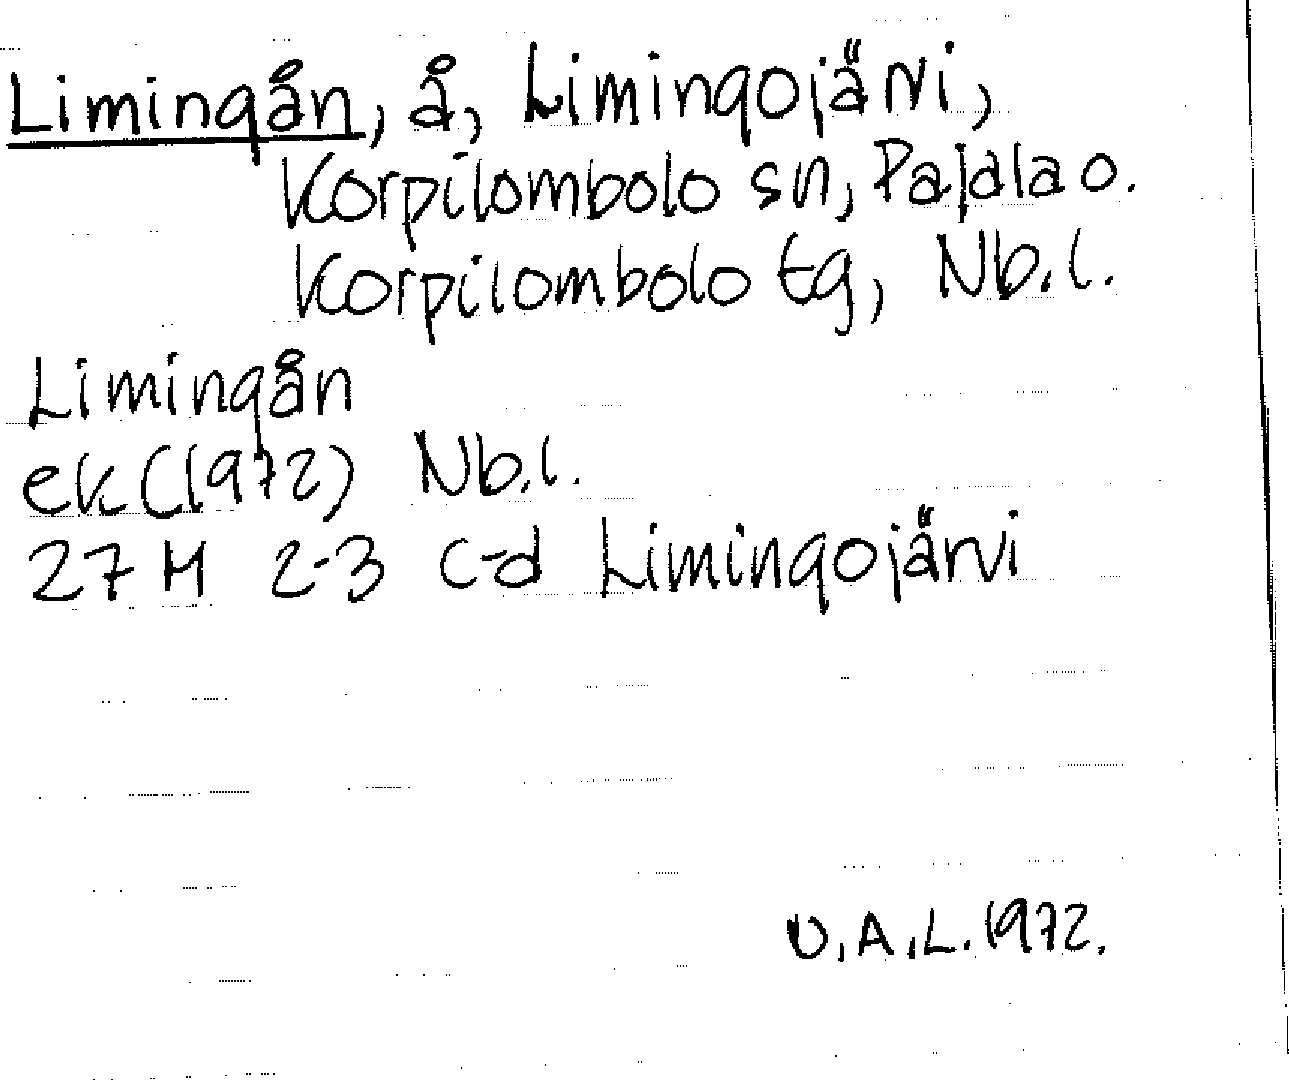 Limingån, å, Limingojärvi,
Korpilombolo sn, Pajala o.
Korpilombolo tg, Nb.l.
Limingån
ek (1972) Nb.l.
27 M 2-3 c-d Limingojärvi
U.A.L. 1972.